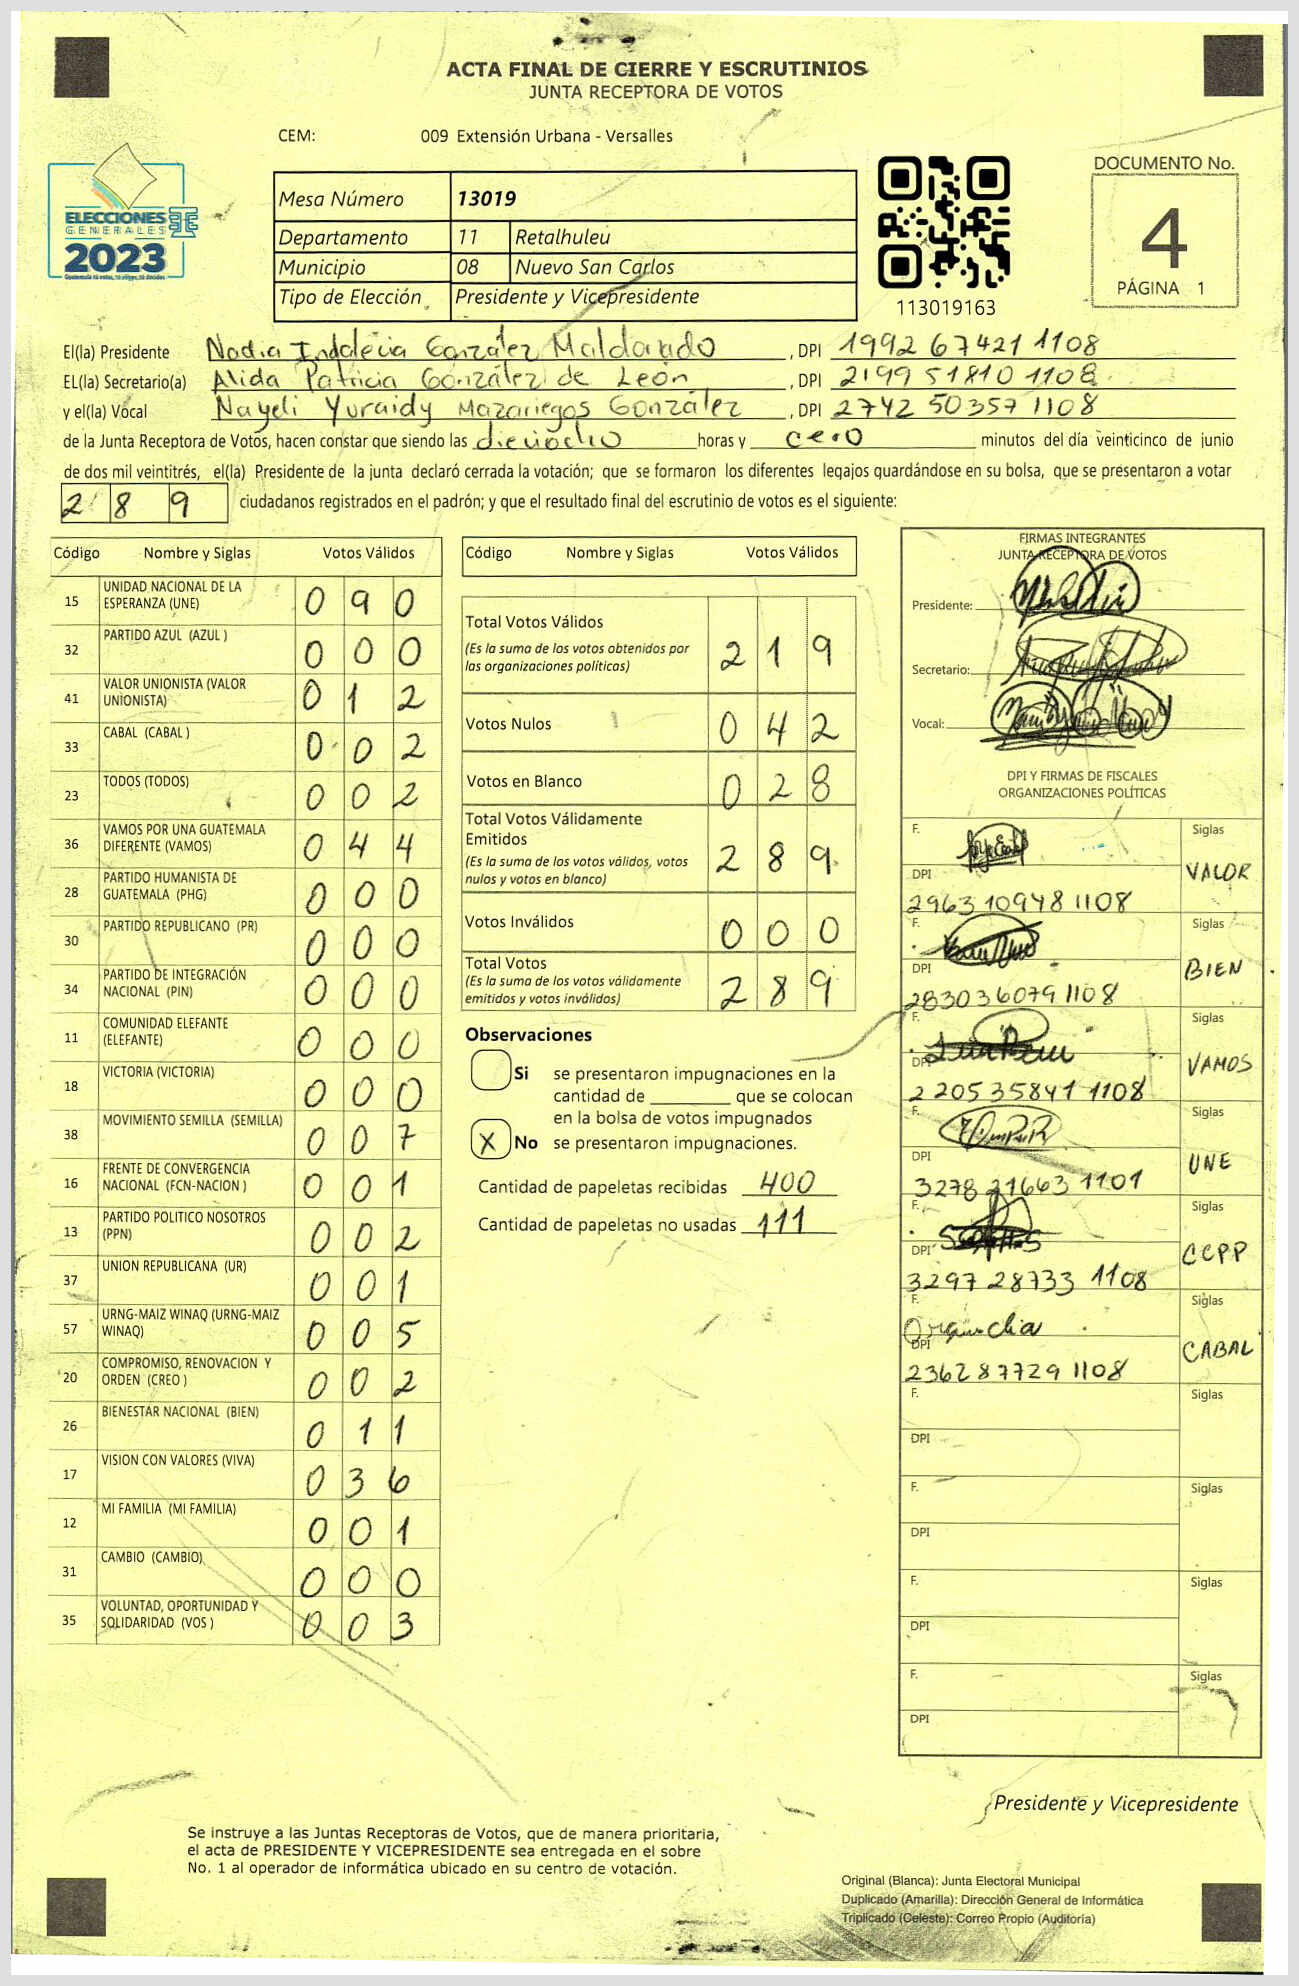 ACTA FINAL DE CIERRE Y ESCRUTINIOS
JUNTA RECEPTORA DE VOTOS
CEM: 009 Extensión Urbana - Versalles
ELECCIONES
GENERALES
2023
Mesa Número 13019
Departamento 11 Retalhuleu
Municipio 08 Nuevo San Carlos
Tipo de Elección Presidente y Vicepresidente
113019163
DOCUMENTO No.
4
PÁGINA 1
El(la) Presidente Nadia Indalecia González Maldonado, DPI 1992 67421 1108
EL(la) Secretario(a) Alida Patricia González de León, DPI 2199 51810 1108
y el(la) Vocal Nayeli Yuraidy Mazariegos González, DPI 2742 50357 1108
de la Junta Receptora de Votos, hacen constar que siendo las dieciocho horas y cero minutos del día veinticinco de junio
de dos mil veintitrés, el(la) Presidente de la junta declaró cerrada la votación; que se formaron los diferentes legajos quardándose en su bolsa, que se presentaron a votar
2 8 9 ciudadanos registrados en el padrón; y que el resultado final del escrutinio de votos es el siguiente:
Código Nombre y Siglas Votos Válidos
15 UNIDAD NACIONAL DE LA ESPERANZA (UNE) 0 9 0
32 PARTIDO AZUL (AZUL ) 0 0 0
41 VALOR UNIONISTA (VALOR UNIONISTA) 0 1 2
33 CABAL (CABAL ) 0 0 2
23 TODOS (TODOS) 0 0 2
36 VAMOS POR UNA GUATEMALA DIFERENTE (VAMOS) 0 4 4
28 PARTIDO HUMANISTA DE GUATEMALA (PHG) 0 0 0
30 PARTIDO REPUBLICANO (PR) 0 0 0
34 PARTIDO DE INTEGRACIÓN NACIONAL (PIN) 0 0 0
11 COMUNIDAD ELEFANTE (ELEFANTE) 0 0 0
18 VICTORIA (VICTORIA) 0 0 0
38 MOVIMIENTO SEMILLA (SEMILLA) 0 0 7
16 FRENTE DE CONVERGENCIA NACIONAL (FCN-NACION ) 0 0 1
13 PARTIDO POLITICO NOSOTROS (PPN) 0 0 2
37 UNION REPUBLICANA (UR) 0 0 1
57 URNG-MAIZ WINAQ (URNG-MAIZ WINAQ) 0 0 5
20 COMPROMISO, RENOVACION Y ORDEN (CREO ) 0 0 2
26 BIENESTAR NACIONAL (BIEN) 0 1 1
17 VISION CON VALORES (VIVA) 0 3 6
12 MI FAMILIA (MI FAMILIA) 0 0 1
31 CAMBIO (CAMBIO) 0 0 0
35 VOLUNTAD, OPORTUNIDAD Y SOLIDARIDAD (VOS ) 0 0 3
Código Nombre y Siglas Votos Válidos
Total Votos Válidos 2 1 9
(Es la suma de los votos obtenidos por
las organizaciones políticas)
Votos Nulos 0 4 2
Votos en Blanco 0 2 8
Total Votos Válidamente
Emitidos 2 8 9
(Es la suma de los votos válidos, votos
nulos y votos en blanco)
Votos Inválidos 0 0 0
Total Votos 2 8 9
(Es la suma de los votos válidamente
emitidos y votos inválidos)
Observaciones
Si se presentaron impugnaciones en la
cantidad de ________ que se colocan
en la bolsa de votos impugnados
X No se presentaron impugnaciones.
Cantidad de papeletas recibidas 400
Cantidad de papeletas no usadas 111
FIRMAS INTEGRANTES
JUNTA RECEPTORA DE VOTOS
Presidente:
Secretario:
Vocal:
DPI Y FIRMAS DE FISCALES
ORGANIZACIONES POLÍTICAS
F. Siglas
DPI VALOR
2963 10948 1108
F. Siglas
DPI BIEN
2830 36079 1108
F. Siglas
DPI VAMOS
2205 35841 1108
F. Siglas
DPI UNE
3278 21663 1101
F. Siglas
DPI CCPP
3297 28733 1108
F. Siglas
DPI CABAL
2362 87729 1108
F. Siglas
DPI
F. Siglas
DPI
F. Siglas
DPI
F. Siglas
DPI
Presidente y Vicepresidente
Se instruye a las Juntas Receptoras de Votos, que de manera prioritaria,
el acta de PRESIDENTE Y VICEPRESIDENTE sea entregada en el sobre
No. 1 al operador de informática ubicado en su centro de votación.
Original (Blanca): Junta Electoral Municipal
Duplicado (Amarilla): Dirección General de Informática
Triplicado (Celeste): Correo Propio (Auditoría)